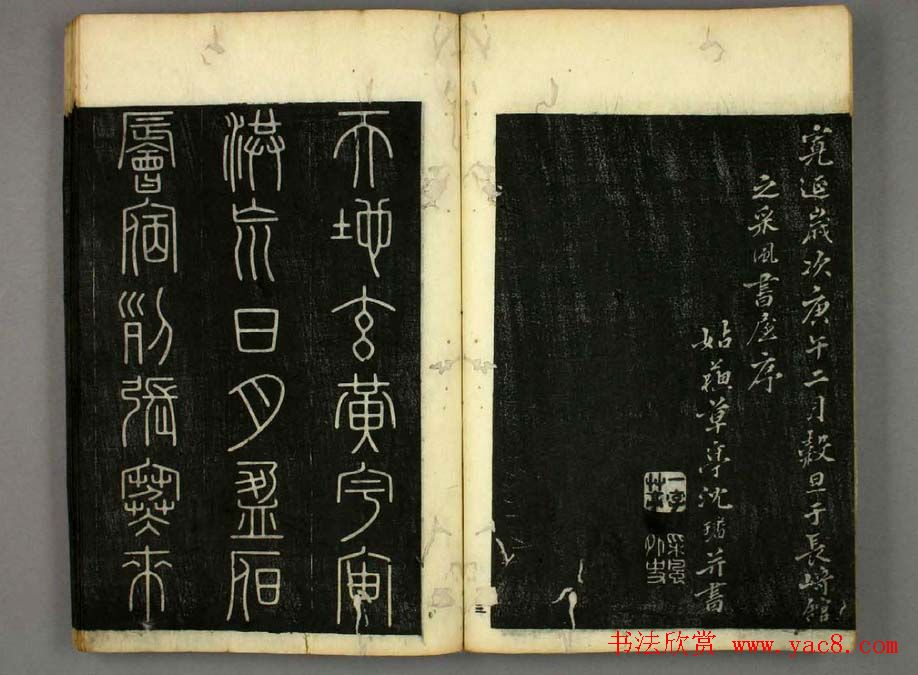 寬延歲次庚午二月穀旦于長崎館
之采風書屋序
姑蘓草亭沈 并書
天地玄黃宇宙
洪巟日月盈昃
宿列張寒來
三
书法欣赏 www.yac8.com